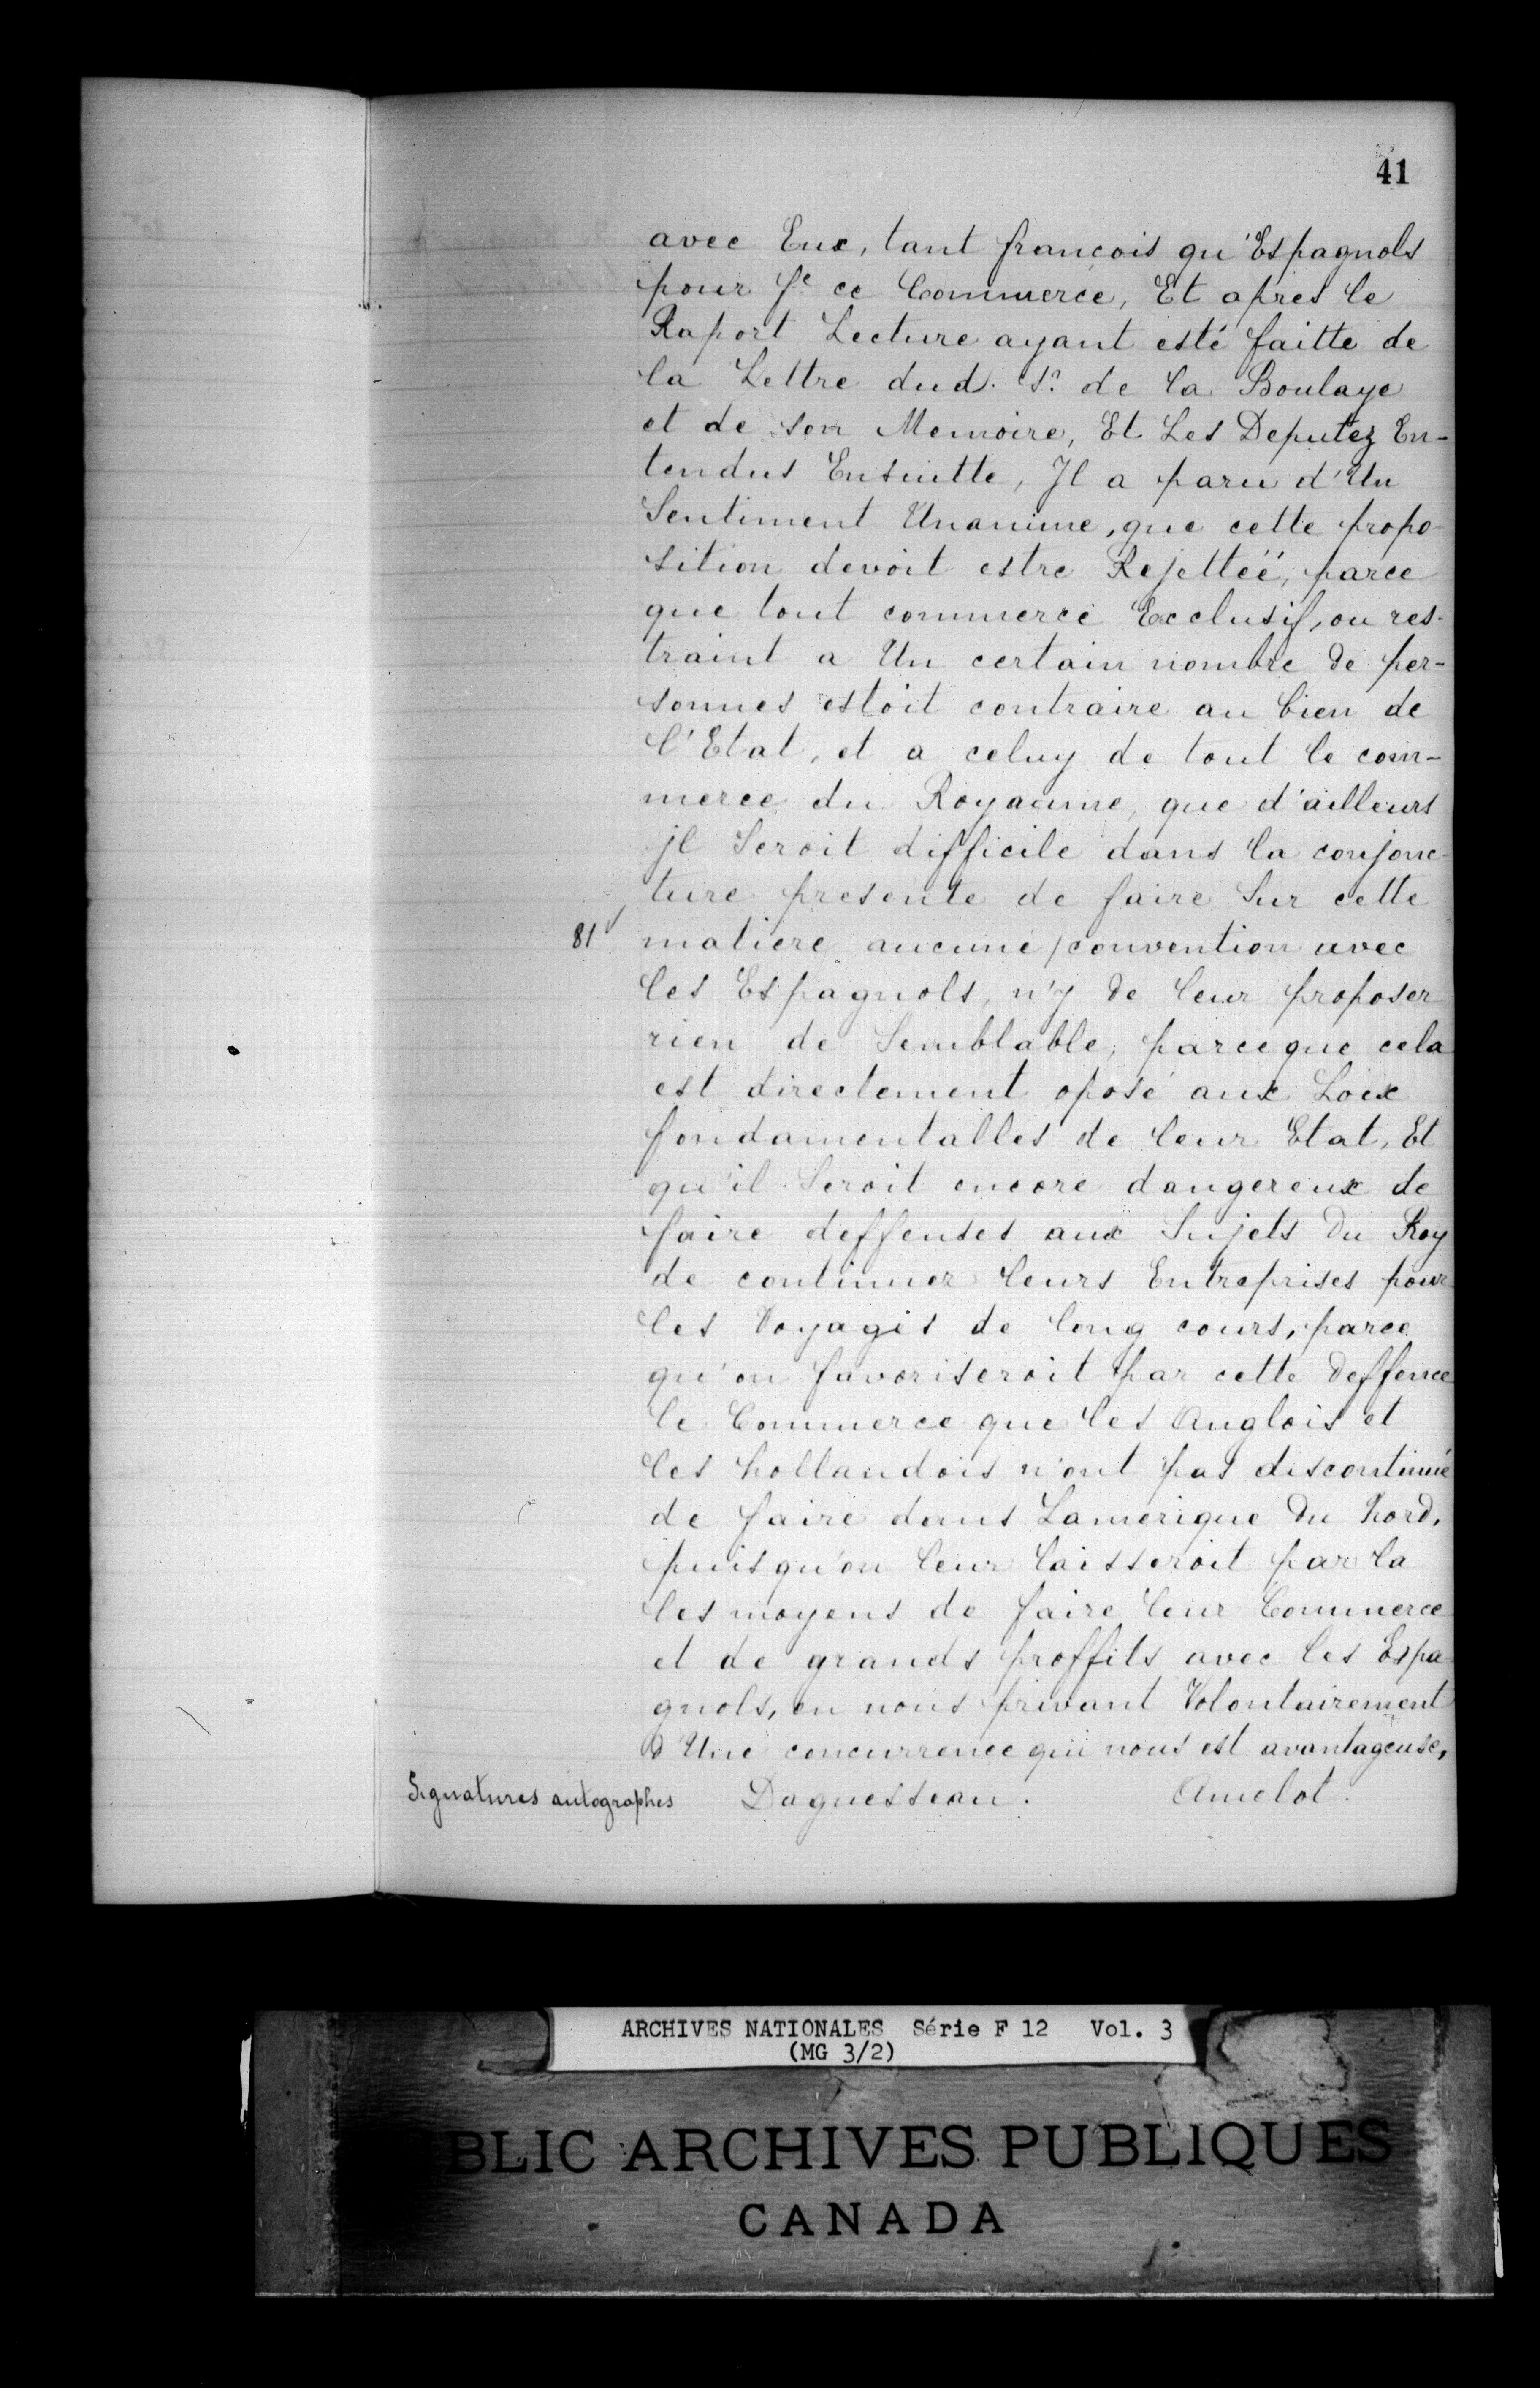 41
avec Eux, tant françois qu'Espagnols
pour fe ce Commerce, Et apres le
Raport Lecture ayant esté faitte de
la Lettre dud. Sr. de la Boulaye
et de son Memoire, Et Les Deputez En-
tendus Ensuitte, Jl a paru d'Un
Sentiment Unanime, que cette propo-
sition devoit estre Rejettéé, parce
que tout commerce Exclusif, ou res-
traint a Un certain nombre de per-
sonnes estoit contraire au bien de
l'Etat, et a celuy de tout le com-
merce du Royaume, que d'ailleurs
jl Seroit difficile dans la conjonc-
ture presente de faire Sur cette
81v matiere aucune / convention avec
les Espagnols, n'y de leur proposer
rien de Semblable, parceque cela
est directement oposé aux Loix
fondamentalles de leur Etat, Et
qu'il Seroit encore dangereux de
faire deffenses aux Sujets du Roy
de continuer leurs Entreprises pour
les Voyages de long cours, parce
qu'on favoriseroit par cette deffence
le Commerce que les Anglois et
les hollandois n'ont pas discontinué
de faire dans Lamerique du Nord,
puisqu'on leur laisseroit par la
les moyens de faire leur Commerce
et de grands proffits avec les Espa
gnols, en nous privant Volontairement
d'Une concurrence qui nous est avantageuse,
Signatures autographes Daguesseau. Amelot.
ARCHIVES NATIONALES Série F 12 Vol. 3
(MG 3/2)
BLIC ARCHIVES PUBLIQUES
CANADA